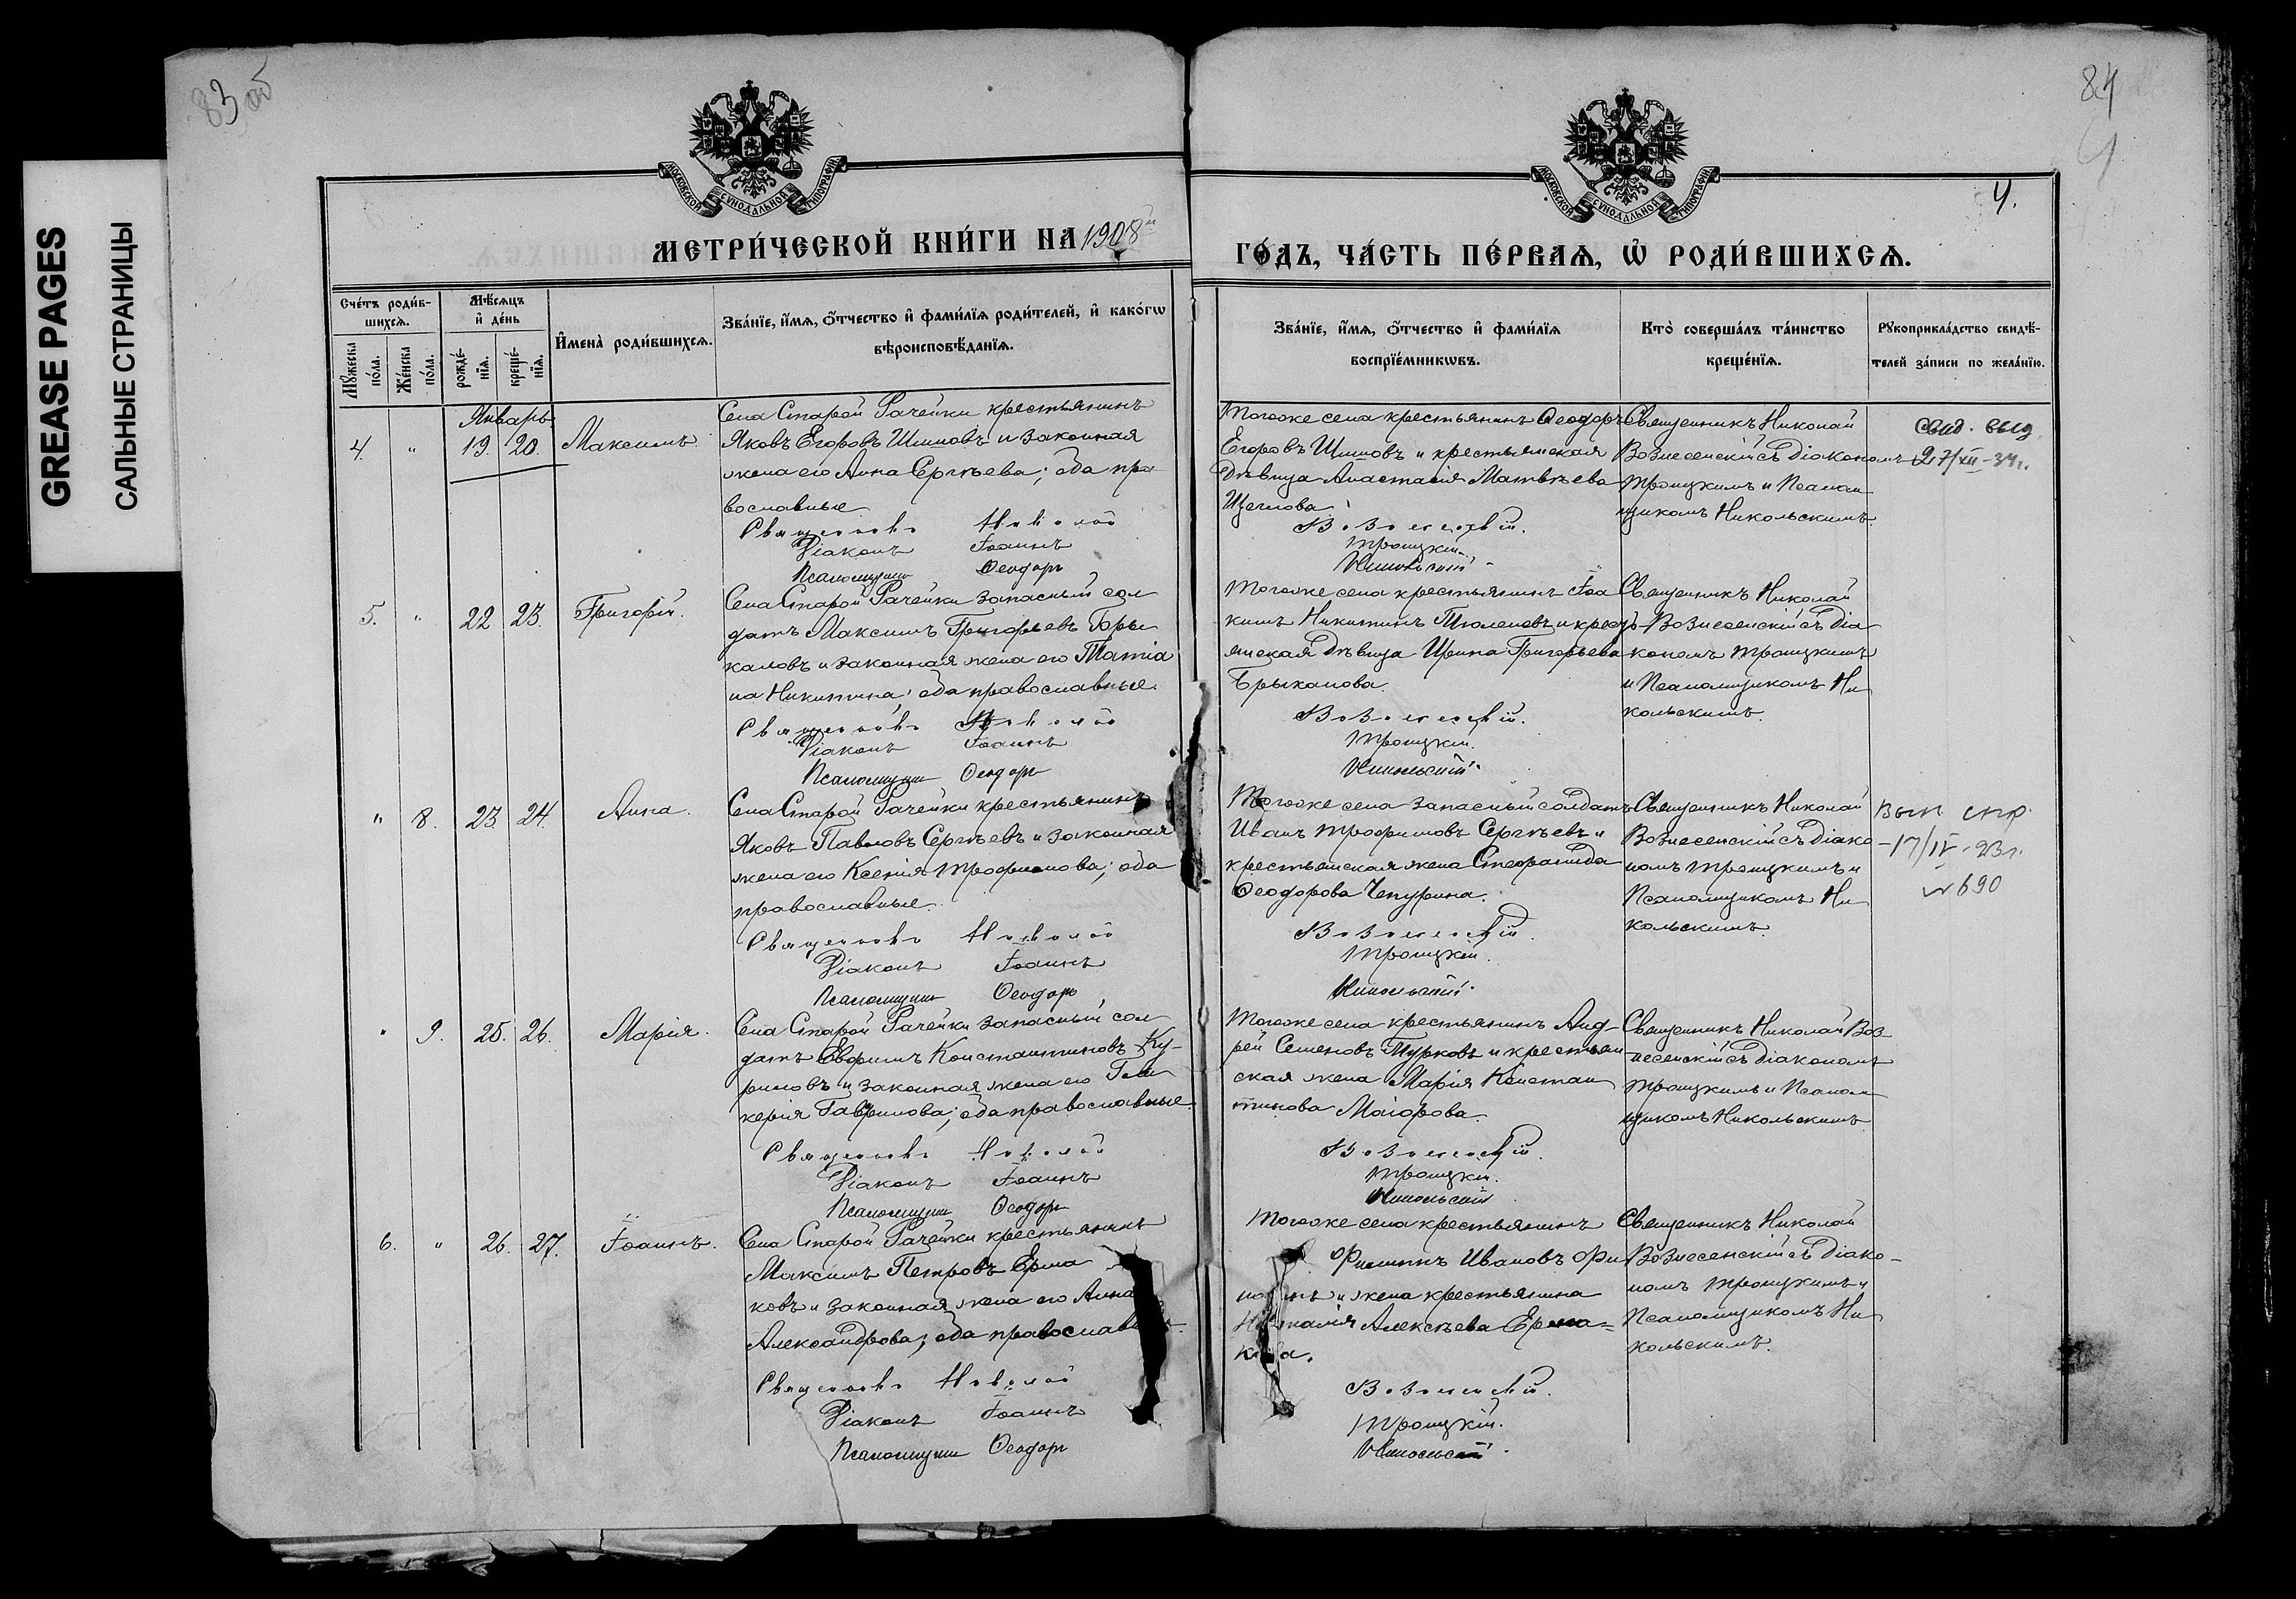 GREASE PAGES
САЛЬНЫЕ СТРАНИЦЫ
83 об
84
4
4.
МОСКОВСКОЙ СУНОДАЛЬНОЙ ТИПОГРАФІИ
МОСКОВСКОЙ СУНОДАЛЬНОЙ ТИПОГРАФІИ
МЕТРИ́ЧЕСКОЙ КНИ́ГИ НА 1908й
ГО́ДЪ, ЧА́СТЬ ПЕ́РВАѦ, Ѡ҆ РОДИ́ВШИХСѦ.
Сче́тъ роди́в-
шихсѧ.
Мѣ́сѧцъ
и҆ де́нь
Мꙋ́жеска по́ла.
Же́нска по́ла.
рожде́-нїѧ.
креще́-нїѧ.
И҆мена̀ роди́вшихсѧ.
Зва́нїе, и҆́мѧ, ѻ҆́тчество и҆ фами́лїѧ роди́телей, и҆ како́гѡ
вѣроисповѣ́данїѧ.
Зва́нїе, и҆́мѧ, ѻ҆́тчество и҆ фами́лїѧ
воспрїе́мникѡвъ.
Кто̀ соверша́лъ та́инство
креще́нїѧ.
Рꙋкоприкла́дство свидѣ́-
телей за́писи по жела́нїю.
Январь
4. " 19. 20. Максимъ.
Села Старой Рачейки крестьянинъ
Яковъ Егоровъ Шиповъ и законная
жена его Анна Сергѣева; оба пра
вославные
Священникъ Николай
Діаконъ Іоаннъ
Псаломщикъ Ѳеодоръ
Тогоже села крестьянинъ Ѳеодоръ
Егоровъ Шиповъ и крестьянская
дѣвица Анастасія Матвѣева
Щеглова
Вознесенскій.
Троицкій.
Никольскій
Священникъ Николай
Вознесенскій съ діакономъ
Троицкимъ и Псалом
щикомъ Никольскимъ
Свид. выд
27/XII-34г.
5. " 22 23. Григорій.
Села Старой Рачейки запасный сол
датъ Максимъ Григорьевъ Бры
каловъ и законная жена его Татіа
на Никитина; оба православные.
Священникъ Николай
Діаконъ Іоаннъ
Псаломщикъ Ѳеодоръ
Тогоже села крестьянинъ Іоа
кимъ Никитинъ Тюленевъ и кресть-
янская дѣвица Ирина Григорьева
Брыкалова.
Вознесенскій.
Троицкій.
Никольскій.
Священникъ Николай
Вознесенскій съ Діа
кономъ Троицкимъ
и Псаломщикомъ Ни
кольскимъ.
" 8. 23. 24. Анна.
Села Старой Рачейки крестьянинъ
Яковъ Павловъ Сергѣевъ и законная
жена его Ксенія Трофимова; оба
православные.
Священникъ Николай
Діаконъ Іоаннъ
Псаломщикъ Ѳеодоръ
Тогоже села запасный солдатъ
Иванъ Трофимовъ Сергѣевъ и
крестьянская жена Стефанида
Ѳеодорова Чепурина.
Вознесенскій.
Троицкій.
Никольскій.
Священникъ Николай
Вознесенскій съ Діако-
номъ Троицкимъ и
Псаломщикомъ Ни
кольскимъ.
Вып спр.
17/IV-23г.
№690
" 9. 25. 26. Марія.
Села Старой Рачейки запасный сол
датъ Евфимъ Константиновъ Ку-
риловъ и законная жена его Гли
керія Гаврилова; оба православные.
Священникъ Николай
Діаконъ Іоаннъ
Псаломщикъ Ѳеодоръ
Тогоже села крестьянинъ Анд-
рей Семеновъ Турковъ и крестьян
ская жена Марія Констан
тинова Маіорова.
Вознесенскій.
Троицкій.
Никольскій
Священникъ Николай Воз-
несенскій съ Діакономъ
Троицкимъ и Псалом
щикомъ Никольскимъ
6. " 26. 27. Іоаннъ.
Села Старой Рачейки крестьянинъ
Максимъ Петровъ Ерма
ковъ и законная жена его Анна
Александрова; оба православ
Священникъ Николай
Діаконъ Іоаннъ
Псаломщикъ Ѳеодоръ
Тогоже села крестьянинъ
Филиппъ Ивановъ Фи
и жена крестьянина
Алексѣева Ерма=
Вознесенскій.
Троицкій.
Никольскій.
Священникъ Николай
Вознесенскій съ Діако-
номъ Троицкимъ и
Псаломщикомъ Ни
кольскимъ.